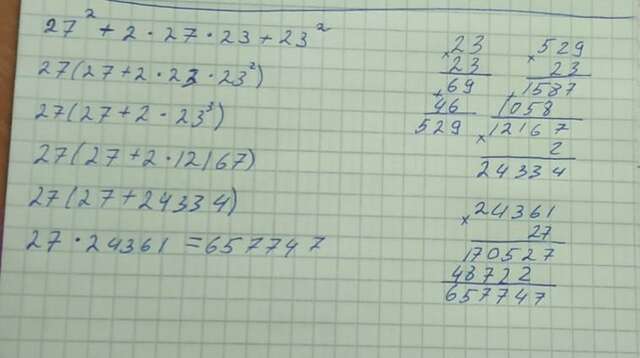 27² + 2 · 27 · 23 + 23²
27(27 + 2 · 23 · 23²)
27(27 + 2 · 23³)
27(27 + 2 · 12167)
27(27 + 24334)
27 · 24361 = 657747
× 23
23
+ 69
46
529
× 529
23
+ 1587
1058
× 12167
2
24334
× 24361
27
170527
48722
657747